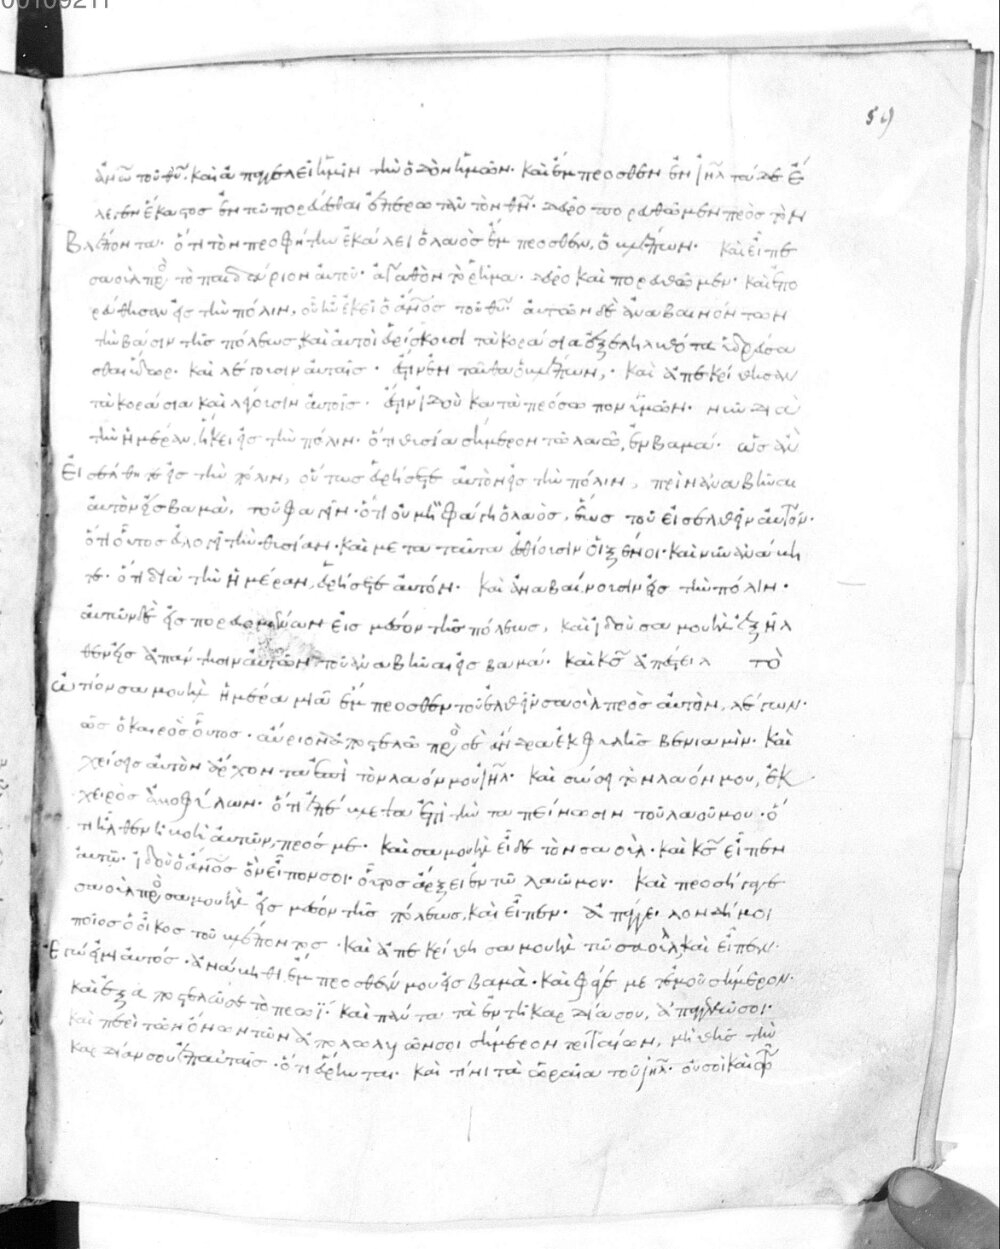 59
ἀνω̅ τοῦ θυ̅. καὶ ἀπαγγελεῖ ἡμῖν τὴν ὁδὸν ἡμῶν. καὶ ἔμπροσθεν ἐν ιη̅λ τάδε ἔ
λεγεν ἕκαστος ἐν τῶ πορεύεσθαι ἐπερωτᾶν τὸν θν̅. δεῦρο πορευθῶμεν πρὸς τὸν
βλέποντα. ὅτι τὸν προφήτην ἐκάλει ὁ λαὸς ἔμπροσθεν, ὁ βλέπων. καὶ εἶπε
σαοὺλ πρὸς τὸ παιδάριον αὐτοῦ. ἀγαθὸν τὸ ρῆμα. δεῦρο καὶ πορευθῶμεν. καὶ ἐπο
ρεύθησαν εἰς τὴν πόλιν, οὗ ἦν ἐκεῖ ὁ ἄνο̅ς τοῦ θυ̅. αὐτῶν δὲ ἀναβαινόντων
τὴν βάσιν τῆς πόλεως, καὶ αὐτοὶ εὑρίσκουσι τὰ κοράσια ἐξεληλυθότα ὑδρεύσα
σθαι ὕδωρ. καὶ λέγουσιν αὐταῖς. εἰ ἔστιν ἐνταῦθα ὁ βλέπων. καὶ ἀπεκρίθησαν
τὰ κοράσια καὶ λέγουσιν αὐτοῖς. ἔστιν ἰδοὺ κατὰ πρόσωπον ὑμῶν. νῦν διὰ
τὴν ἡμέραν, ἥκει εἰς τὴν πόλιν. ὅτι θυσία σήμερον τῶ λαῶ, ἐν βαμά. ὡς ἂν
εἰσέλθητε εἰς τὴν πόλιν, οὕτως εὑρήσετε αὐτὸν εἰς τὴν πόλιν, πρὶν ἀναβῆναι
αὐτὸν εἰς βαμὰ, τοῦ φαγεῖν. ὅτι οὐ μὴ φάγη ὁ λαὸς, ἕως τοῦ εἰσελθεῖν αὐτόν.
ὅτι οὗτος εὐλογεῖ τὴν θυσίαν. καὶ μετὰ ταῦτα ἐσθίουσιν οἱ ξένοι. καὶ νῦν ἀνάβη
τε. ὅτι διὰ τὴν ἡμέραν, εὑρήσετε αὐτόν. καὶ ἀναβαίνουσιν εἰς τὴν πόλιν.
αὐτῶν δὲ εἰσπορευομένων εἰς μέσον τῆς πόλεως, καὶ ἰδοὺ σαμουὴλ ἐξῆλ
θεν εἰς ἀπάντησιν αὐτῶν τοῦ ἀναβῆναι εἰς βαμά. καὶ κς̅ ἀπεκάλ τὸ
ὠτίον σαμουὴλ ἡμέρα μιᾶ ἔμπροσθεν τοῦ ἐλθεῖν σαοὺλ πρὸς αὐτὸν, λέγων.
ὡς ὁ καιρὸς οὗτος. αὔριον ἀποστελῶ πρὸς σὲ ἄνδρα ἐκ φυλῆς βενιαμίν. καὶ
χρίσεις αὐτὸν ἄρχοντα ἐπὶ τὸν λαόν μου ιη̅λ. καὶ σώσει τὸν λαόν μου, ἐκ
χειρὸς ἀλλοφύλων. ὅτι ἐπέβλεψα ἐπὶ τὴν ταπείνωσιν τοῦ λαοῦ μου. ὅ
τι ἦλθεν ἡ βοὴ αὐτῶν, πρός με. καὶ σαμουὴλ εἶδε τὸν σαούλ. καὶ κς̅ εἶπεν
αὐτῶ. ἰδοὺ ὁ ἄνο̅ς ὃν εἶπον σοι. οὗτος ἄρξει ἐν τῶ λαῶ μου. καὶ προσήγαγε
σαοὺλ πρὸς σαμουὴλ εἰς μέσον τῆς πόλεως, καὶ εἶπεν. ἀπάγγειλον δή μοι
ποῖος ὁ οἶκος τοῦ βλέποντος. καὶ ἀπεκρίθη σαμουὴλ τῶ σαοὺλ καὶ εἶπεν.
ἐγώ εἰμι αὐτός. ἀνάβηθι ἔμπροσθέν μου εἰς βαμὰ. καὶ φάγε μετ' ἐμοῦ σήμερον.
καὶ ἐξαποστελῶ σε τὸ πρωΐ. καὶ πάντα τὰ ἐν τῆ καρδία σου, ἀπαγγελῶ σοι.
καὶ περὶ τῶν ὄνων τῶν ἀπολωλυιῶν σοι σήμερον τριταίων, μὴ θῆς τὴν
καρδίαν σου ἐπ' αὐταῖς. ὅτι εὕρηνται. καὶ τίνι τὰ ὡραῖα τοῦ ιη̅λ. οὐ σοὶ καὶ τῶ